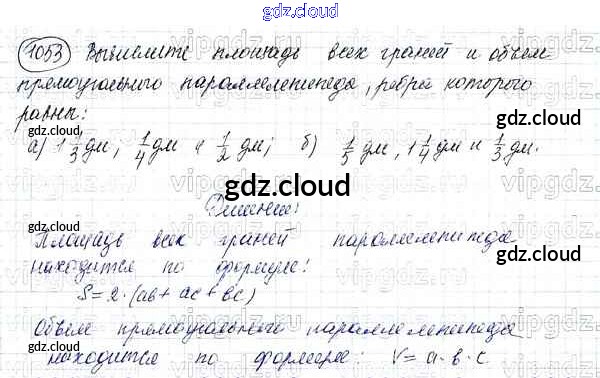 gdz.cloud
1053 Вычислите площадь всех граней и объем
прямоугольного параллелепипеда, ребра которого
равны:
gdz.cloud
gdz.cloud
а) 1 1/3 дм, 1/4 дм и 1/2 дм; б) 1/5 дм, 1 1/4 дм и 1/3 дм.
gdz.cloud
gdz.cloud
Решение:
gdz.cloud
Площадь всех граней параллелепипеда
gdz.cloud
находится по формуле:
S = 2·(ab + ac + bc)
gdz.cloud
Объем прямоугольного параллелепипеда
gdz.cloud
находится по формуле: V = a·b·c